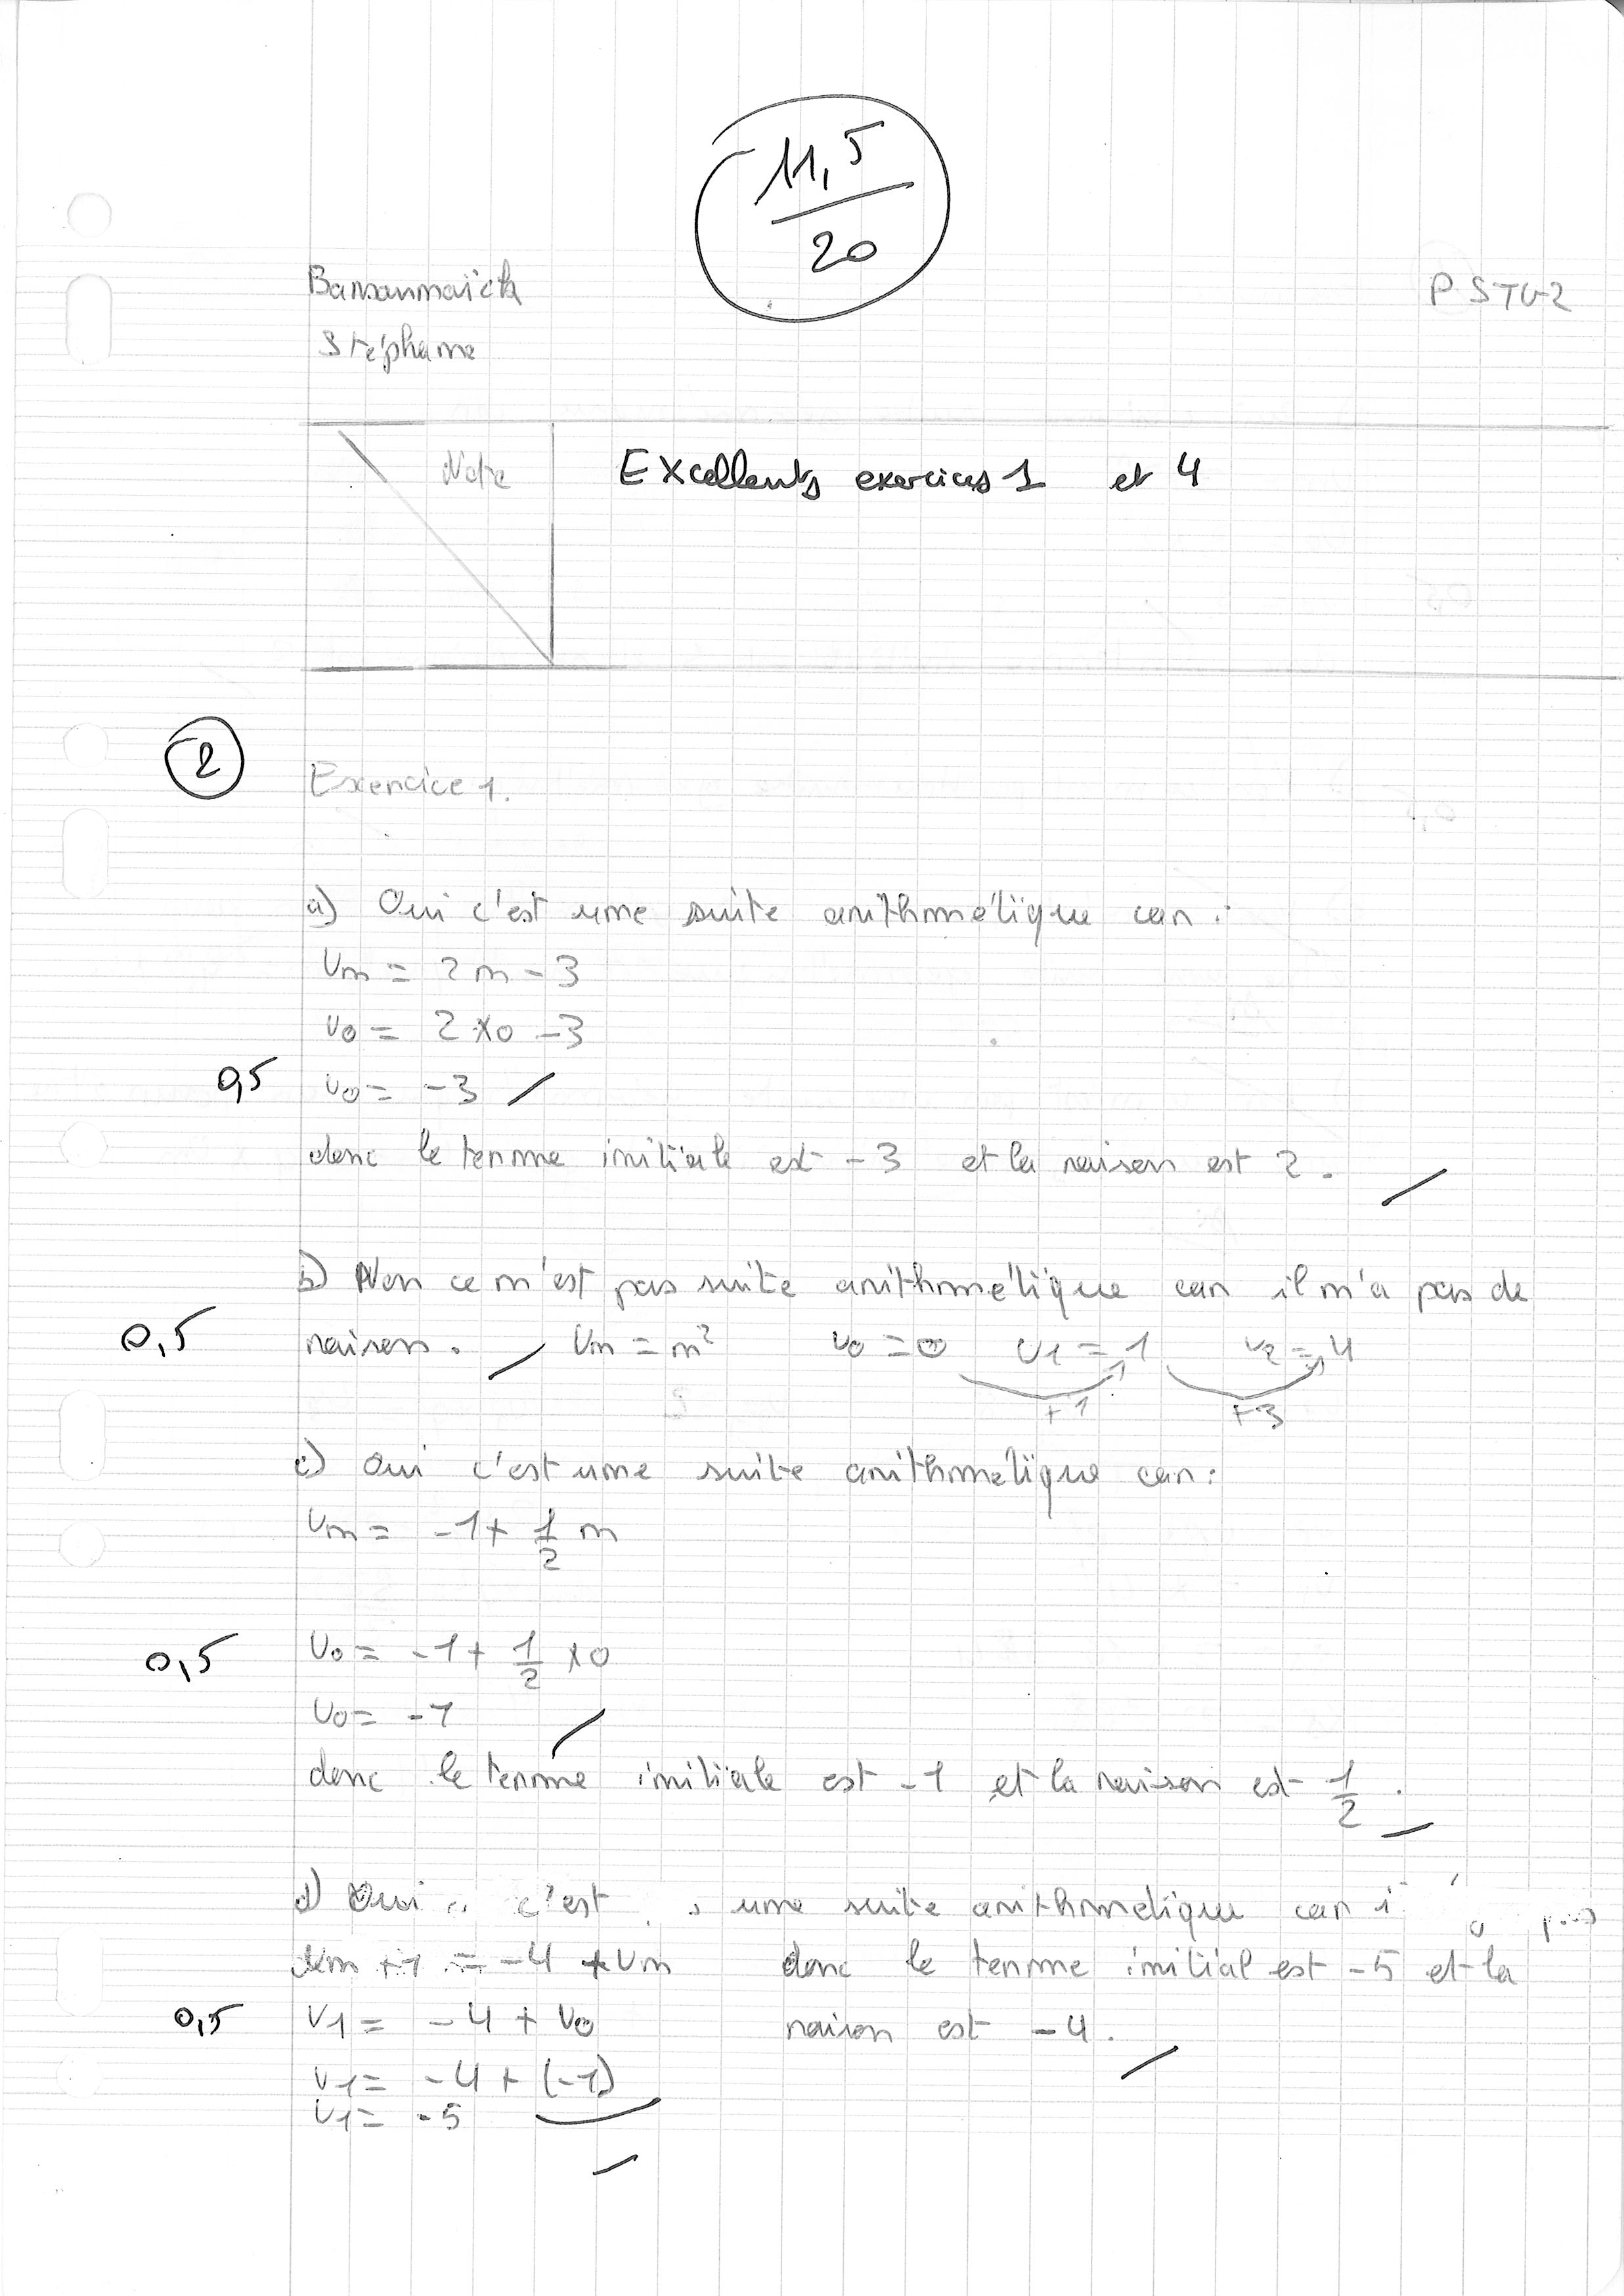 11,5
20
P STG2
Stéphane
Note
Excellents exercices 1 et 4
2
Exercice 1.
a) Oui c'est une suite arithmétique car :
Un = 2n - 3
U0 = 2 x 0 - 3
0,5
U0 = -3
donc le terme initiale est -3 et la raison est 2.
b) Non ce n'est pas suite arithmétique car il n'a pas de
0,5
raison. Un = n² U0 = 0 U1 = 1 U2 = 4
+1 +3
c) Oui c'est une suite arithmétique car :
Un = -1 + 1/2 n
0,5
U0 = -1 + 1/2 x 0
U0 = -1
donc le terme initiale est -1 et la raison est 1/2.
d) Oui c'est une suite arithmétique car
Un+1 = -4 + Un donc le terme initial est -5 et la
0,5
U1 = -4 + U0 raison est -4.
U1 = -4 + (-1)
U1 = -5